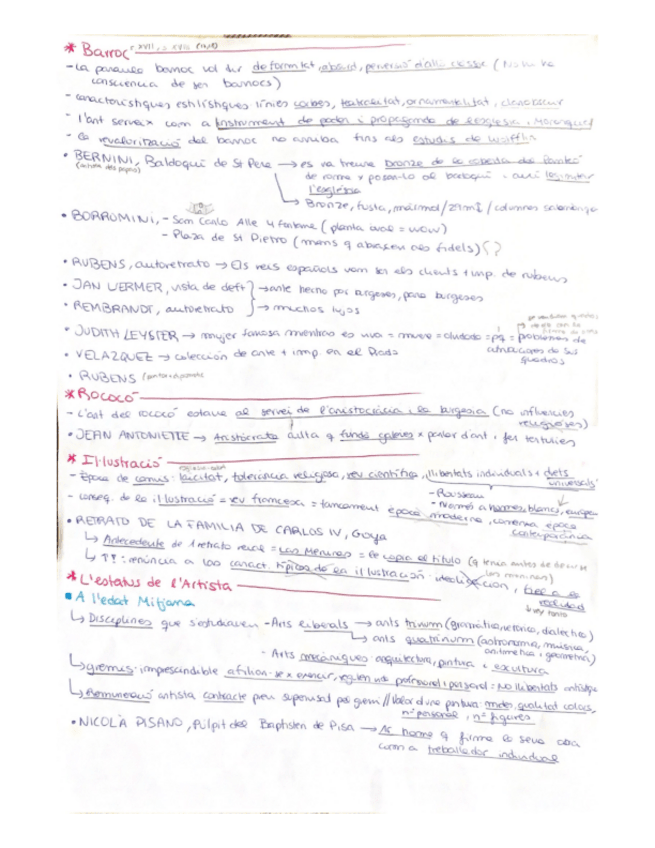 * Barroc
- La paraula barroc vol dir deformitat, absurd, (No hi ha
consciència de ser barrocs)
- característiques estilístiques línies corbes, teatralitat, ornamentalitat, clarobscur
- l'art serveix com a instrument de poder i propaganda de l'església i Monarquia
- La revalorització del barroc no arriba fins als estudis de Wölfflin
• BERNINI, Baldoquí de St Pere → es va treure bronze de la
de roma x posar-lo al i així legitimar
l'església
↳ Bronze, fusta, màrmol / / columnes
• BORROMINI, - San Carlo Alle 4 fontane (planta oval = wow)
- Plaza de St Pietro (mans q abracen als fidels) (?
• RUBENS, autoretrato → Els reis españols van ser els clients + imp. de rubens
• JAN VERMER, vista de deft → arte hecho por burgeses, para burgeses
• REMBRANDT, autoretrato → muchos hijos
• JUDITH LEYSTER → mujer famosa mientras es viva = muere = olvidada = pq = problemas de
atribuciones de sus
quadros
• VELAZQUEZ → colección de arte + imp. en el Prado
• RUBENS
* ROCOCÓ
- L'art del rococó estava al servei de l'aristocràcia i la burgesia (no influències
religioses)
• JEAN ANTONIETTE → Aristòcrata culta q funda x parlar d'art i fer tertúlies
* Il·lustració
- Època de canvis: laïcitat, tolerància religiosa, rev científica, llibertats individuals i drets
universals
- Rousseau
- Només a homes, blancs, europeus
- conseq. de la il·lustració = rev francesa = tancament època moderna, comença època
contemporània
• RETRATO DE LA FAMILIA DE CARLOS IV, Goya
↳ Antecedente de 1 retrato real = Las Meninas = Se copia el título (q tenia antes de
las meninas)
↳ : renúncia a las caract. típicas de la il·lustración: idealización,
realidad
* L'estatus de l'Artista
▪ A l'edat Mitjana
↳ Disciplines que s'estudiaven - Arts liberals → arts trivium (gramàtica, retòrica, dialectica)
↳ arts quatrivium (astronomia, música,
aritmetica i geometria)
- Arts mecàniques: arquitectura, pintura i escultura
↳ gremis: imprescindible afiliar-se x exercir, professional i personal = No llibertats
↳ Remuneració artista contracte preu supervisat pel gremi // Valor d'una pintura: mides, qualitat colors,
nº personal, nº figures
• NICOLÀ PISANO, Púlpit del Baptisteri de Pisa → 1r home q firma la seva obra
com a treballador individual